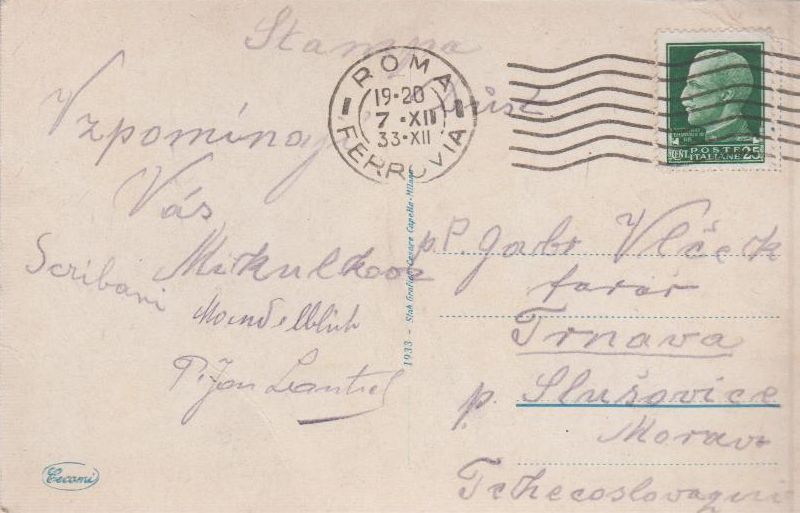 Stampa
Vzpomínají
Vás
Mikulkovi
Scribani
P. Jan
ROMA
FERROVIA
19-20
7 · XII
33 · XII
POSTE
ITALIANE
CENT. 25
1933 - Stab. Grafico Cesare Capello - Milano
p. P. Gabr Vlček
farář
Trnava
p. Slušovice
Morava
Tchecoslovaquie
Cecami